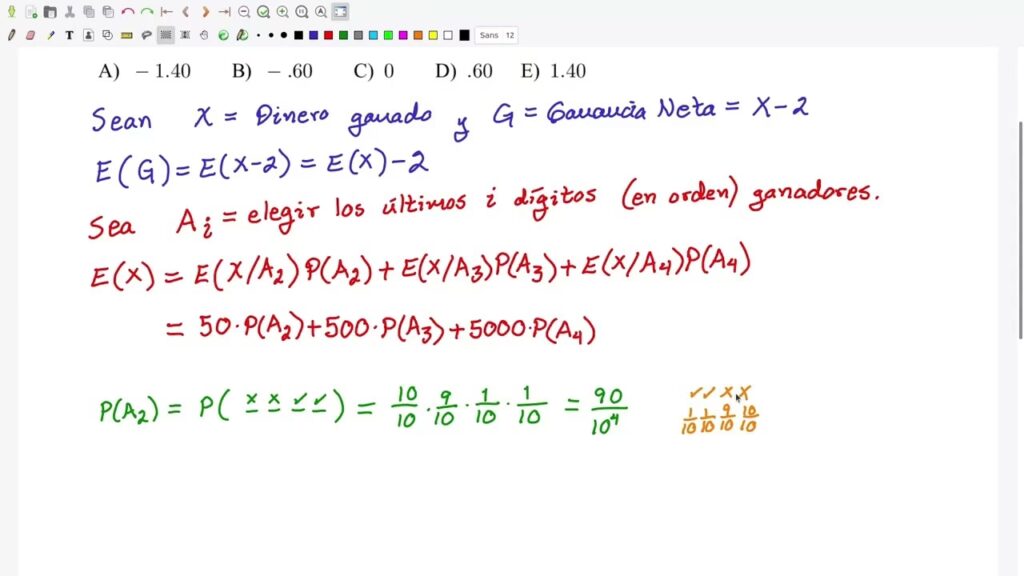 T Sans 12
A) − 1.40 B) − .60 C) 0 D) .60 E) 1.40
Sean X = Dinero ganado y G = Ganancia Neta = X-2
E(G) = E(X-2) = E(X)-2
Sea A_i = elegir los últimos i dígitos (en orden) ganadores.
E(X) = E(X/A_2) P(A_2) + E(X/A_3)P(A_3) + E(X/A_4)P(A_4)
= 50·P(A_2)+500·P(A_3)+5000·P(A_4)
✓✓××
P(A_2) = P( × × ✓ ✓ ) = 10/10 · 9/10 · 1/10 · 1/10 = 90/10^4 1/10 1/10 9/10 10/10